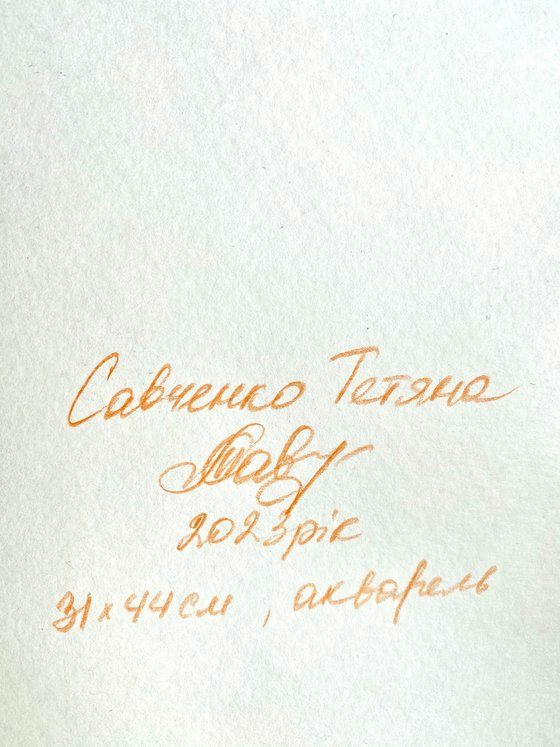 Савченко Тетяна
2023 рік
31 х 44 см , акварель